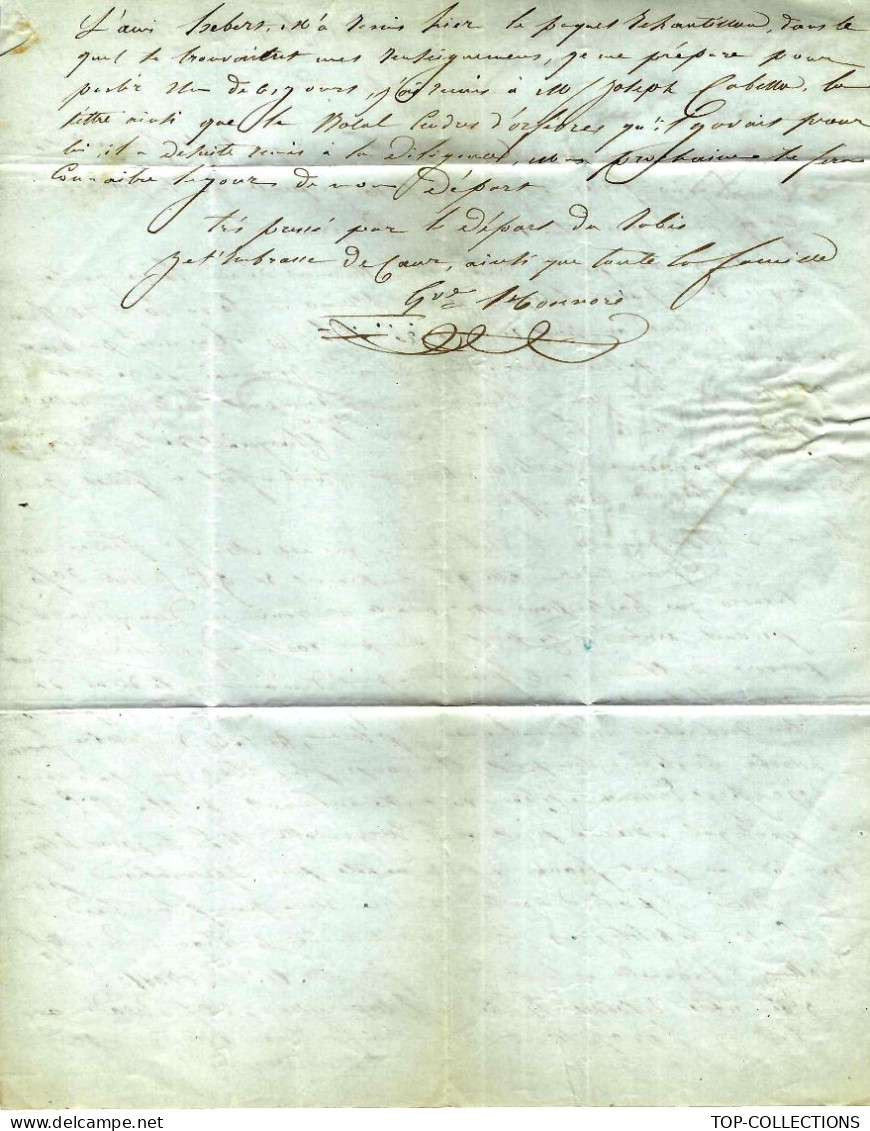 L'ami hebert, M'a remis hier le paquet Echantillon, dans le
quel se trouvoient mes renseignemens, je me prépare pour
partir de jours, j'ai remis à Mr Joseph Cabella, la
lettre ainsi que le d'orfèvres qu'il y avait pour
lui, il a de suite remis à la diligence, ma prochaine te fera
Connaitre le jour de mon Départ
très pressé par le départ du
Je t'Embrasse de Coeur, ainsi que toute la famille
Honnoré
TOP-COLLECTIONS